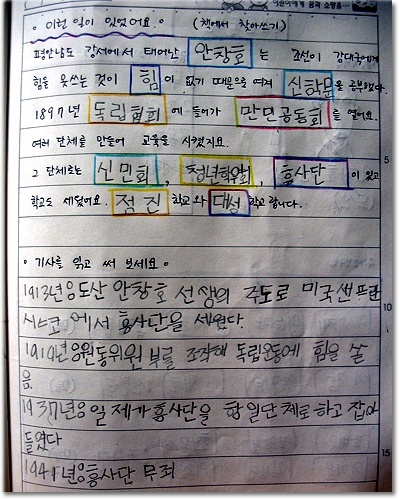 어린이에게 꿈과 소망을...
◦ 이런 일이 있었어요. ◦ (책에서 찾아쓰기)
평안남도 강서에서 태어난 안창호는 조선이 강대국에게
힘을 못쓰는 것이 힘이 없기 때문으로 여겨 신학문을 공부했다.
1897년 독립협회에 들어가 만민공동회를 열어요.
여러 단체를 만들어 교육을 시켰지요.
그 단체로는 신민회, 청년학우회, 흥사단이 있고 5
학교도 세웠어요. 점진 학교와 대성 학교랍니다.
◦ 기사를 읽고 써 보세요 ◦
1913년응도산 안창호 선생의 주도로 미국샌프란 10
시스코에서 흥사단을 세웠다.
1919년응원동위원부를 조작해 독립운동에 힘을 쏟
음.
1937년응일제가 흥사단을 합일단체로하고 잡아
들였다 15
1941년응흥사단 무죄